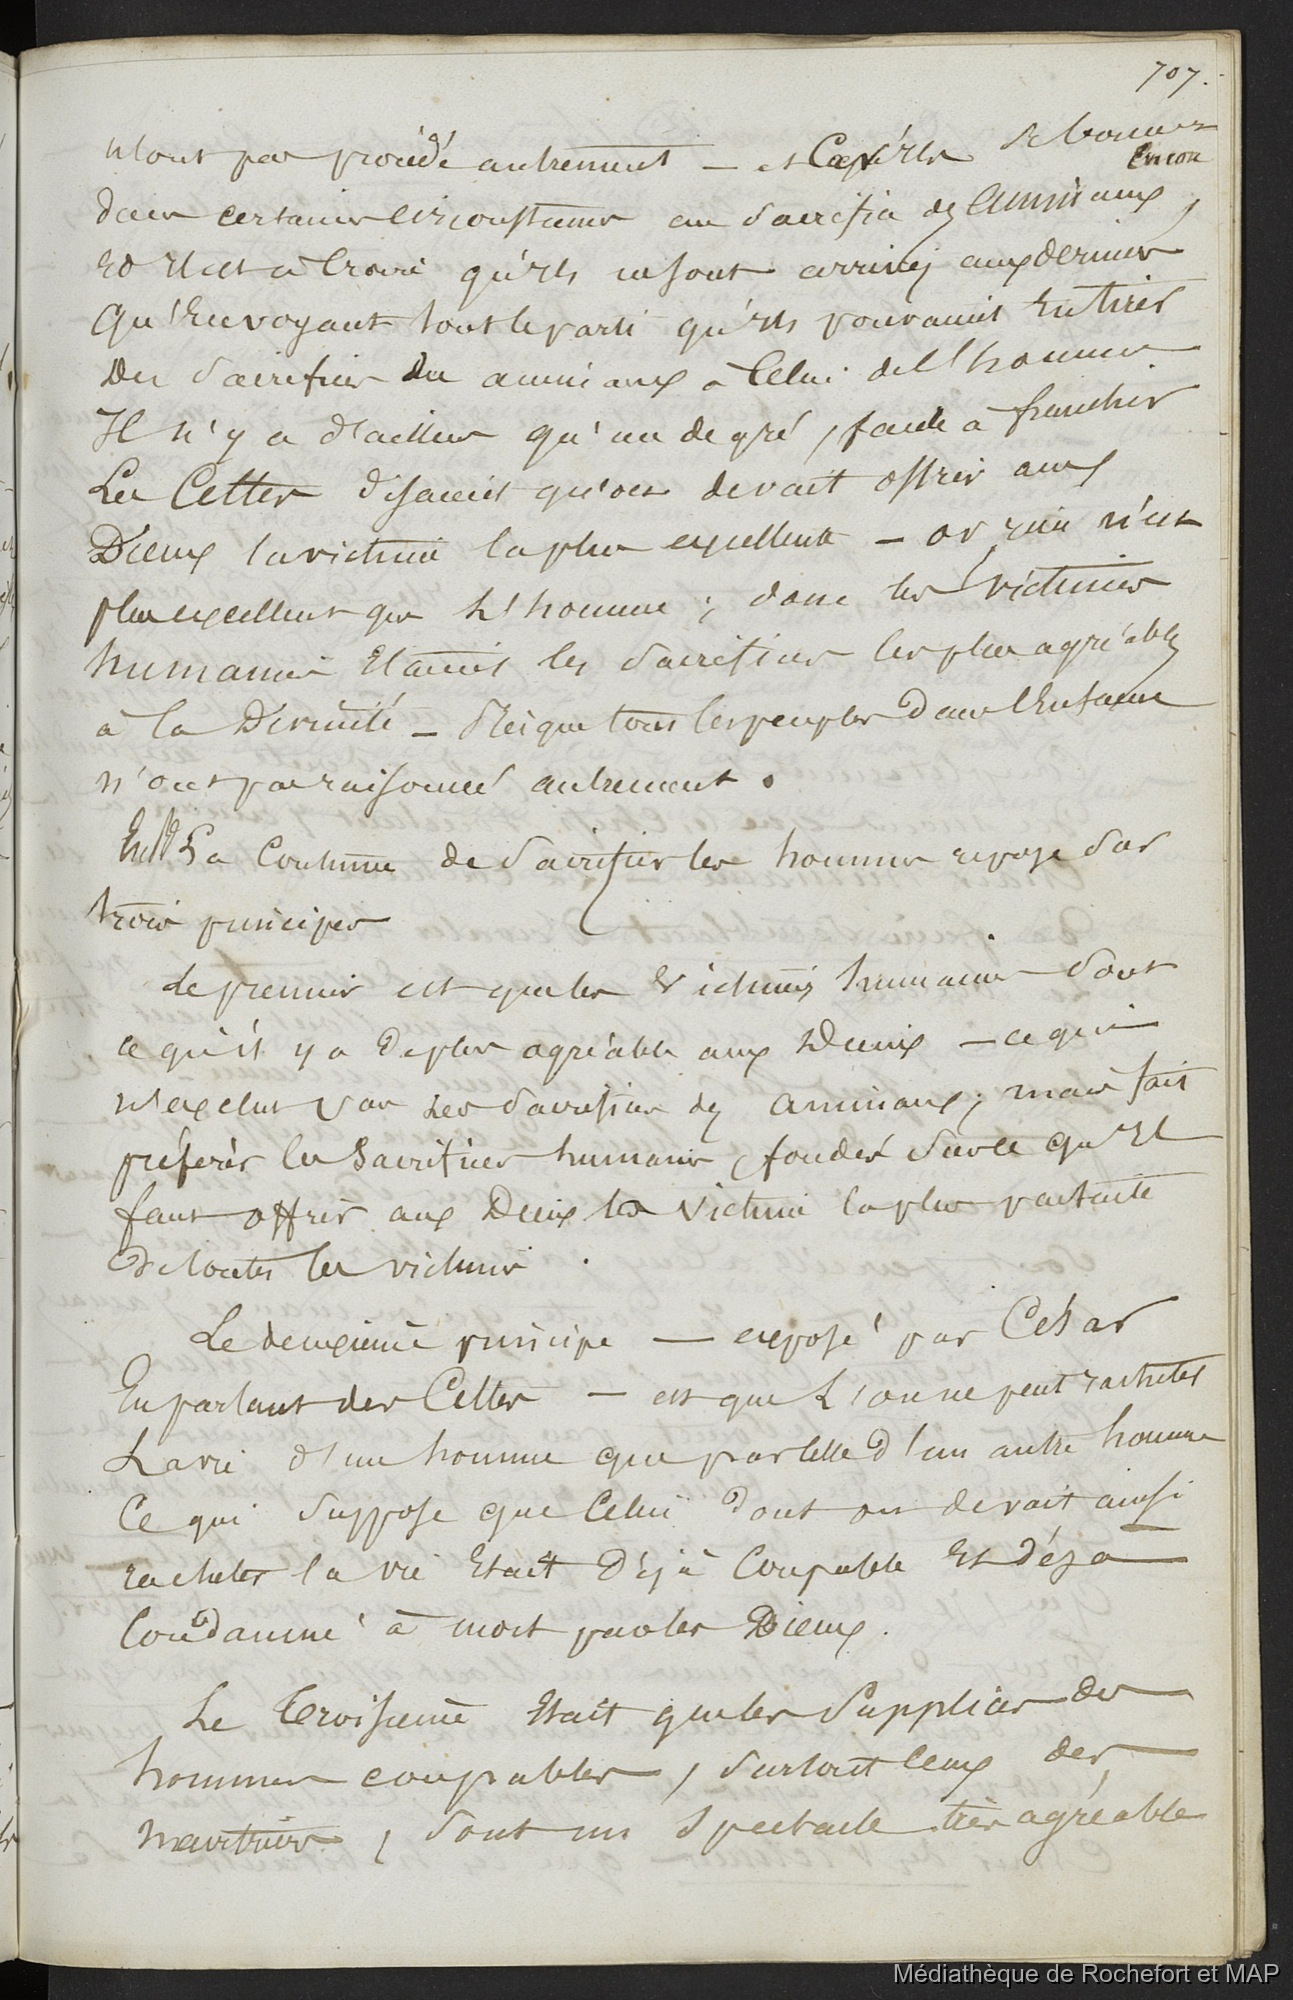 707.
n'ont pas procédé autrement — et Cependt se bornes
encore
dans certaines circonstances au Sacrifice des animaux,
Et Il est à Croire qu'Ils ne sont arrivés aux derniers
Qu'En voyant tout le parti qu'Ils pouvaient En tirer
Des Sacrifices des animaux à Celui de l'homme
Il n'y a d'ailleurs qu'un degré, facile à franchir
Les Celtes disaient qu'on devait offrir aux
Dieux la victime la plus excellente — or rien n'est
plus excellent que L'homme ; donc les victimes
humaines Etaient les Sacrifices les plus agréables
à la Divinité — Dès que tous les peuples dans l'Enfance
n'ont pas raisonné autrement.
La Coutume de Sacrifier les hommes repose Sur
trois principes
Le premier est que les Victimes humaines Sont
ce qu'il y a de plus agréable aux Dieux — ce qui
n'exclut pas les Sacrifices des animaux ; mais fait
préférer les Sacrifices humains, fondés Sur ce qu'Il
faut offrir aux Dieux la Victime la plus parfaite
de toutes les victimes.
Le deuxième principe — exposé par César
En parlant des Celtes — est que L'on ne peut racheter
La vie d'un homme que par Celle d'un autre homme
Ce qui Suppose que Celui dont on devait ainsi
racheter la vie Etait Déjà Coupable Et déjà
Condamné à mort par les Dieux.
Le Troisième Etait que les Supplices des
hommes coupables, Surtout Ceux des
meurtriers, Sont un Spectacle très agréable
Médiathèque de Rochefort et MAP